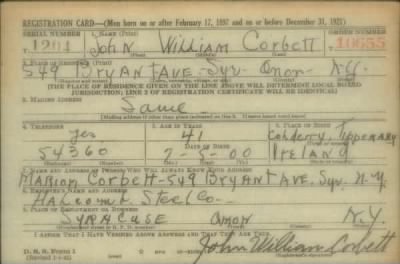 REGISTRATION CARD—(Men born on or after February 17, 1897 and on or before December 31, 1921)
SERIAL NUMBER 1. NAME (Print) ORDER NUMBER
1294 John William Corbett 10655
(First) (Middle) (Last)
2. PLACE OF RESIDENCE (Print)
549 Bryant Ave. Syr. Onon. N.Y.
[THE PLACE OF RESIDENCE GIVEN ON THE LINE ABOVE WILL DETERMINE LOCAL BOARD
JURISDICTION; LINE 2 OF REGISTRATION CERTIFICATE WILL BE IDENTICAL]
3. MAILING ADDRESS
Same
[Mailing address if other than place indicated on line 2. If same insert word same]
4. TELEPHONE 5. AGE IN YEARS 6. PLACE OF BIRTH
Yes 41 Tipperary
DATE OF BIRTH
54360 00 Ireland
7. NAME AND ADDRESS OF PERSON WHO WILL ALWAYS KNOW YOUR ADDRESS
Marion Corbett-549 Bryant Ave, Syr. N.Y.
8. EMPLOYER'S NAME AND ADDRESS
Halcomb Steel Co.
9. PLACE OF EMPLOYMENT OR BUSINESS
Syracuse Onon N.Y.
I AFFIRM THAT I HAVE VERIFIED ABOVE ANSWERS AND THAT THEY ARE TRUE.
D. S. S. Form 1
John William Corbett